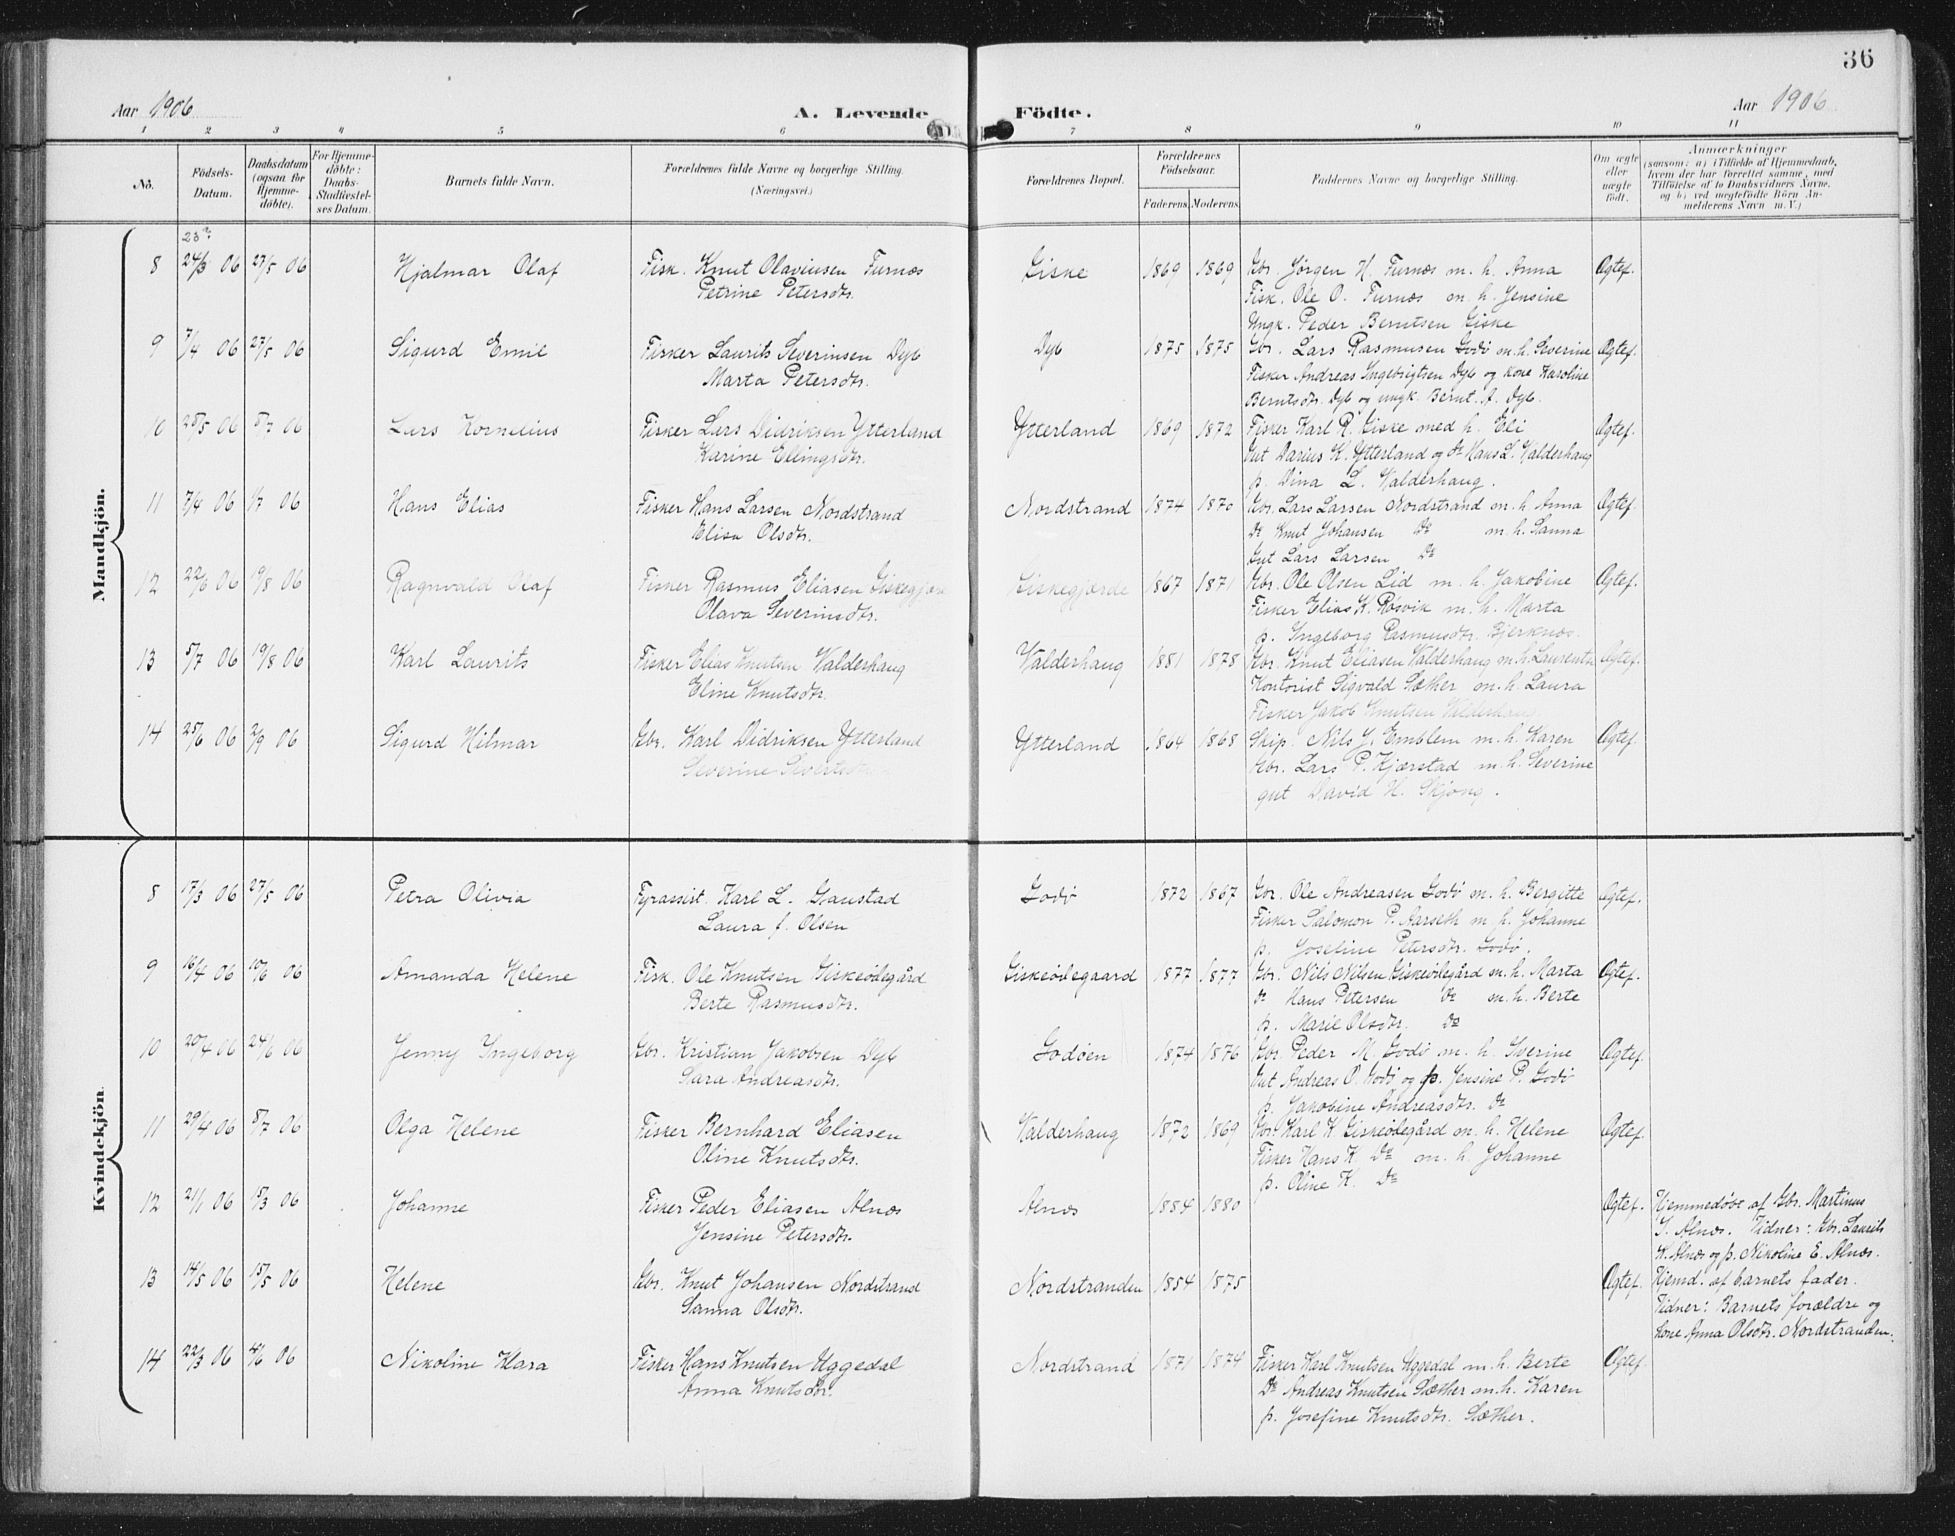 36
Aar 1906
A. Levende Födte.
Aar 1906
1 2 3 4 5 6 7 8 9 10 11
No.
Födsels-
Datum.
Daabsdatum
(ogsaa for
Hjemme-
döbte).
For Hjemme-
döbte:
Daabs-
Stadfæstel-
ses Datum.
Barnets fulde Navn.
Forældrenes fulde Navne og borgerlige Stilling.
(Næringsvei.)
Forældrenes Bopæl.
Forældrenes
Födselsaar.
Faderens Moderens
Faddernes Navne og borgerlige Stilling.
Om ægte
eller
uægte
födt.
Anmærkninger
(saasom: a) i Tilfælde af Hjemmedaab,
hvem der har forrettet samme, med
Tilföielse af to Daabsvidners Navne,
og b) ved uægtefödte Börn An-
melderens Navn m. V.)
Mandkjön.
8 24/3 06 27/5 06 Hjalmar Olaf Fisk. Knut Olavinsen Furnæs Giske 1869 1869 Gbr. Jørgen H. Furnæs m. h. Anna Ægtef.
Petrine Petersdtr. Fisk. Ole O. Furnæs m. h. Jensine
Ungk. Peder Berntsen Giske
9 7/4 06 27/5 06 Sigurd Emil Fisker Laurits Severinsen Dyb Dyb 1875 1875 Gbr. Lars Rasmusen Godø m. h. Severine Ægtef.
Marta Petersdtr. Fisker Andreas Ingebrigtsen Dyb og kone Karoline
Berntsdtr. Dyb og ungk. Bernt A. Dyb.
10 28/5 06 8/7 06 Lars Kornelius Fisker Lars Didriksen Ytterland Ytterland 1869 1872 Fisker Karl R. Giske med h. Eli Ægtef.
Karine Ellingsdtr. Gut Darius K. Ytterland og do Hans L. Valderhaug
p. Dina L. Valderhaug.
11 7/4 06 1/7 06 Hans Elias Fisker Hans Larsen Nordstrand Nordstrand 1874 1870 Gbr. Lars Larsen Nordstrand m. h. Anna Ægtef.
Elisa Olsdtr. Do Knut Johansen Do m. h. Sanna
Gut Lars Larsen Do
12 22/6 06 19/8 06 Ragnvald Olaf Fisker Rasmus Eliasen Giskegjærde Giskegjærde 1867 1871 Gbr. Ole Olsen Lid m. h. Jakobine Ægtef.
Olava Severinsdtr. Fisker Elias K. Røsvik m. h. Marta
p. Ingeborg Rasmusdtr. Bjerknæs.
13 5/7 06 19/8 06 Karl Laurits Fisker Elias Knutsen Valderhaug Valderhaug 1881 1878 Gbr. Knut Eliasen Valderhaug m. h. Laurentse Ægtef.
Eline Knutsdtr. Kontorist Sigvald Sæther m. h. Laura
Fisker Jakob Knutsen Valderhaug
14 25/6 06 2/9 06 Sigurd Hilmar Gbr. Karl Didriksen Ytterland Ytterland 1864 1868 Skip. Nils J. Emblem m. h. Karen Ægtef.
Severine Sivertsdtr. Gbr. Lars P. Kjærstad m. h. Severine
gut David H. Skjong.
Kvindekjön.
8 17/3 06 27/5 06 Petra Olivia Fyrassist. Karl L. Gaustad Godø 1872 1867 Gbr. Ole Andreasen Godø m. h. Bergitte Ægtef.
Laura f. Olsen Fisker Salomon P. Aarseth m. h. Johanne
p. Josefine Petersdtr. Godø.
9 16/4 06 10/6 06 Amanda Helene Fisk. Ole Knutsen Giskeødegård Giskeødegaard 1877 1877 Gbr. Nils Nilsen Giskeødegård m. h. Marta Ægtef.
Berte Rasmusdtr. do Hans Petersen do m. h. Berte
p. Marie Olsdtr. do
10 20/4 06 24/6 06 Jenny Ingeborg Gbr. Kristian Jakobsen Dyb Godøen 1874 1876 Gbr. Peder M. Godø m. h. Severine Ægtef.
Sara Andreasdtr. Gut Andreas P. Godø og p. Jensine P. Godø
p. Jakobine Andreasdtr. do
11 29/4 06 8/7 06 Olga Helene Fisker Bernhard Eliasen Valderhaug 1872 1869 Gbr. Karl K. Giskeødegård m. h. Helene Ægtef.
Oline Knutsdtr. Fisker Hans K. Do m. h. Johanne
p. Oline K. Do
12 21/1 06 15/3 06 Johanne Fisker Peder Eliasen Alnæs Alnæs 1884 1880 Ægtef. Hjemmedøbt af Gbr. Martinus
Jensine Petersdtr. J. Alnæs. Vidner: Gbr. Laurits
K. Alnæs og p. Nikoline E. Alnæs.
13 14/5 06 15/5 06 Helene Gbr. Knut Johansen Nordstrand Nordstranden 1854 1875 Ægtef. Hjemd. af barnets fader.
Sanna Olsdtr. Vidner: Barnets forældre og
kone Anna Olsdtr. Nordstranden.
14 22/3 06 4/6 06 Nikoline Klara Fisker Hans Knutsen Uggedal Nordstrand 1871 1874 Fisker Karl Knutsen Uggedal m. h. Berte Ægtef.
Anna Knutsdtr. Do Andreas Knutsen Sæther m. h. Karen
p. Josefine Knutsdtr. Sæther.